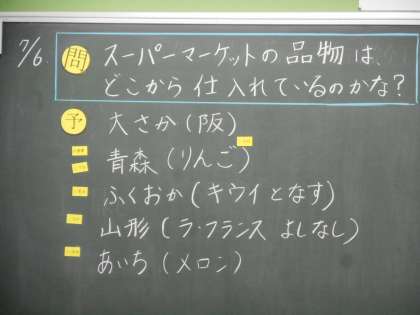 7/6
問 スーパーマーケットの品物は、
どこから仕入れているのかな？
予 大さか（阪）
青森（りんご）
ふくおか（キウイとなす）
山形（ラ・フランス よしなし）
あいち（メロン）